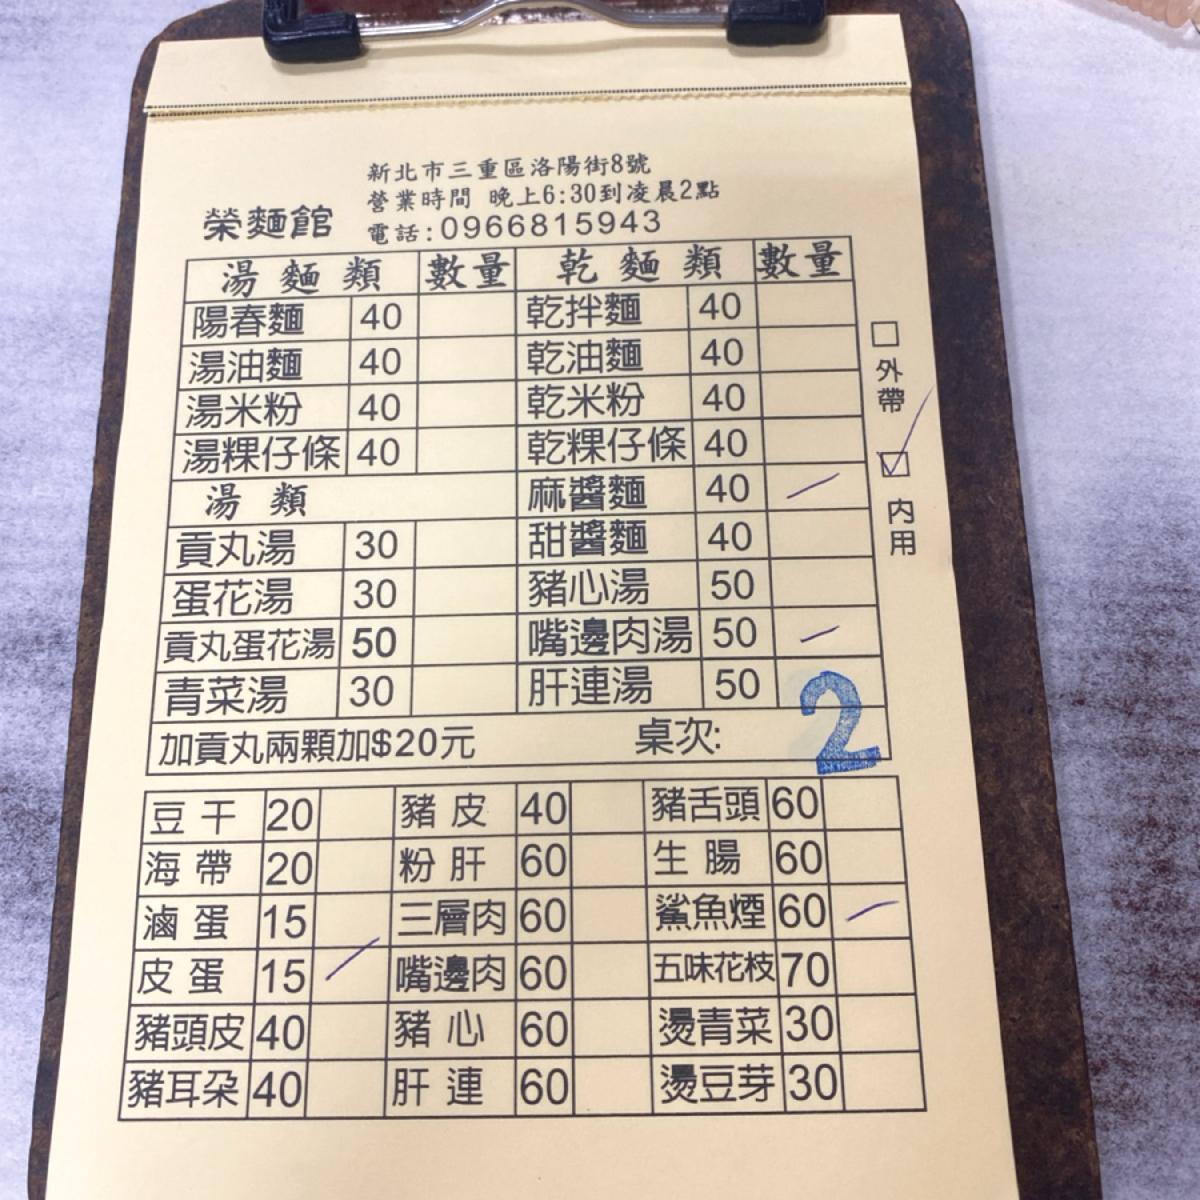 新北市三重區洛陽街8號
營業時間 晚上6:30到凌晨2點
榮麵館 電話:0966815943
湯麵類 數量 乾麵類 數量
陽春麵 40 乾拌麵 40
湯油麵 40 乾油麵 40
湯米粉 40 乾米粉 40
湯粿仔條 40 乾粿仔條 40
湯類 麻醬麵 40
貢丸湯 30 甜醬麵 40
蛋花湯 30 豬心湯 50
貢丸蛋花湯 50 嘴邊肉湯 50
青菜湯 30 肝連湯 50
加貢丸兩顆加$20元 桌次: 2
□外帶
□內用
豆干 20 豬皮 40 豬舌頭 60
海帶 20 粉肝 60 生腸 60
滷蛋 15 三層肉 60 鯊魚煙 60
皮蛋 15 嘴邊肉 60 五味花枝 70
豬頭皮 40 豬心 60 燙青菜 30
豬耳朵 40 肝連 60 燙豆芽 30